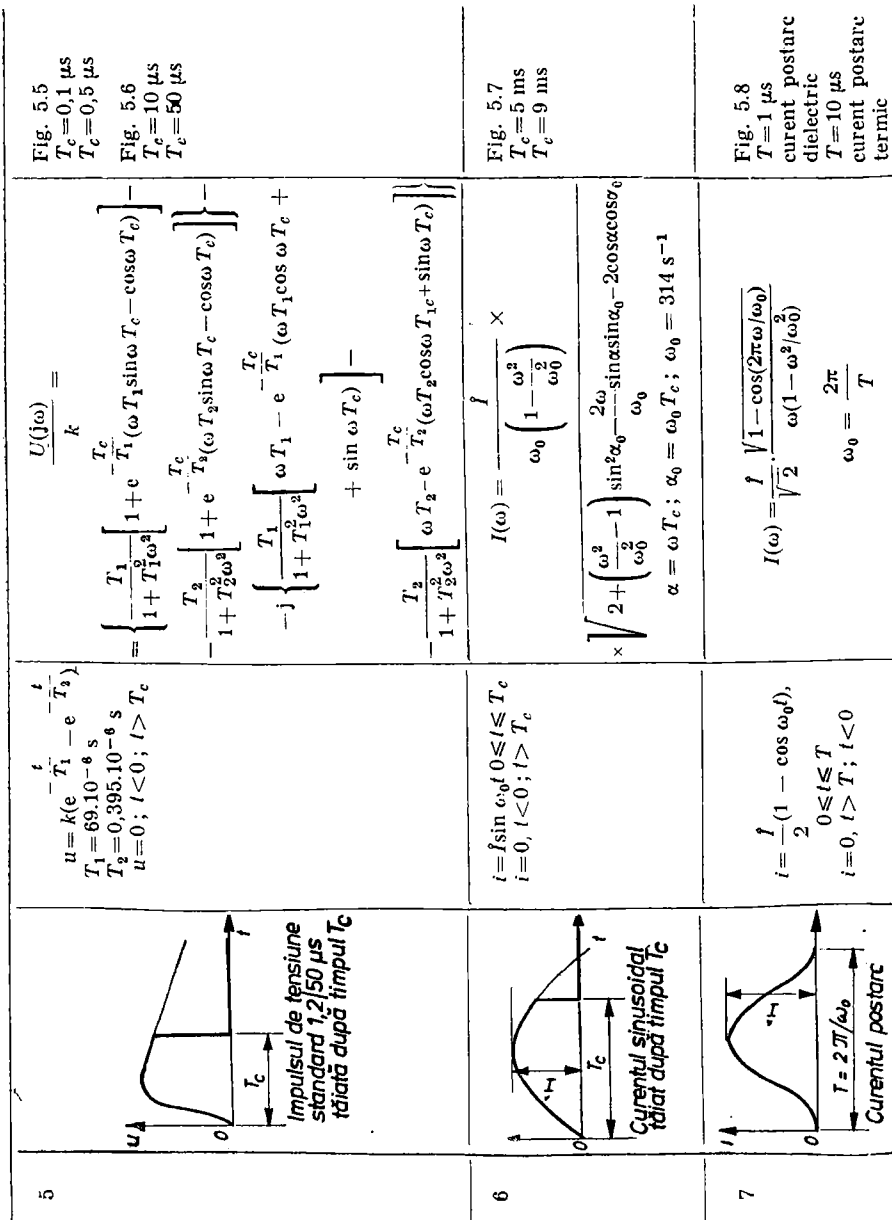 5
u
0
T_c
t
Impulsul de tensiune
standard 1,2/50 μs
tăiată după timpul T_c
u=k(e^{-t/T_1} − e^{-t/T_2})
T_1=69.10^{-6} s
T_2=0,395.10^{-6} s
u=0; t<0; t> T_c
U(jω)/k =
= { T_1/(1+T_1^2ω^2) [ 1+e^{-T_c/T_1}(ωT_1sinωT_c−cosωT_c) ] −
− T_2/(1+T_2^2ω^2) [ 1+e^{-T_c/T_2}(ωT_2sinωT_c−cosωT_c) ] } −
−j { T_1/(1+T_1^2ω^2) [ ωT_1 − e^{-T_c/T_1}(ωT_1cos ωT_c +
+ sin ωT_c) ] −
− T_2/(1+T_2^2ω^2) [ ωT_2−e^{-T_c/T_2}(ωT_2cosωT_{1c}+sinωT_c) ] }
Fig. 5.5
T_c=0,1 μs
T_c=0,5 μs
Fig. 5.6
T_c=10 μs
T_c=50 μs
6
0
Î
T_c
t
Curentul sinusoidal
tăiat după timpul T_c
i=Îsin ω_0t 0≤t≤T_c
i=0, t<0; t>T_c
I(ω) = Î/(ω_0(1−ω^2/ω_0^2)) ×
× √(2+(ω^2/ω_0^2−1)sin^2α_0−(2ω/ω_0)sinαsinα_0−2cosαcosα_0
α = ωT_c; α_0 = ω_0T_c; ω_0 = 314 s^{−1}
Fig. 5.7
T_c=5 ms
T_c=9 ms
7
0
Î
T=2π/ω_0
Curentul postarc
i=Î/2(1 − cos ω_0t),
0≤t≤T
i=0, t>T; t<0
I(ω)=Î/√2 · √(1−cos(2πω/ω_0))/(ω(1−ω^2/ω_0^2))
ω_0 = 2π/T
Fig. 5.8
T=1 μs
curent postarc
dielectric
T=10 μs
curent postarc
termic